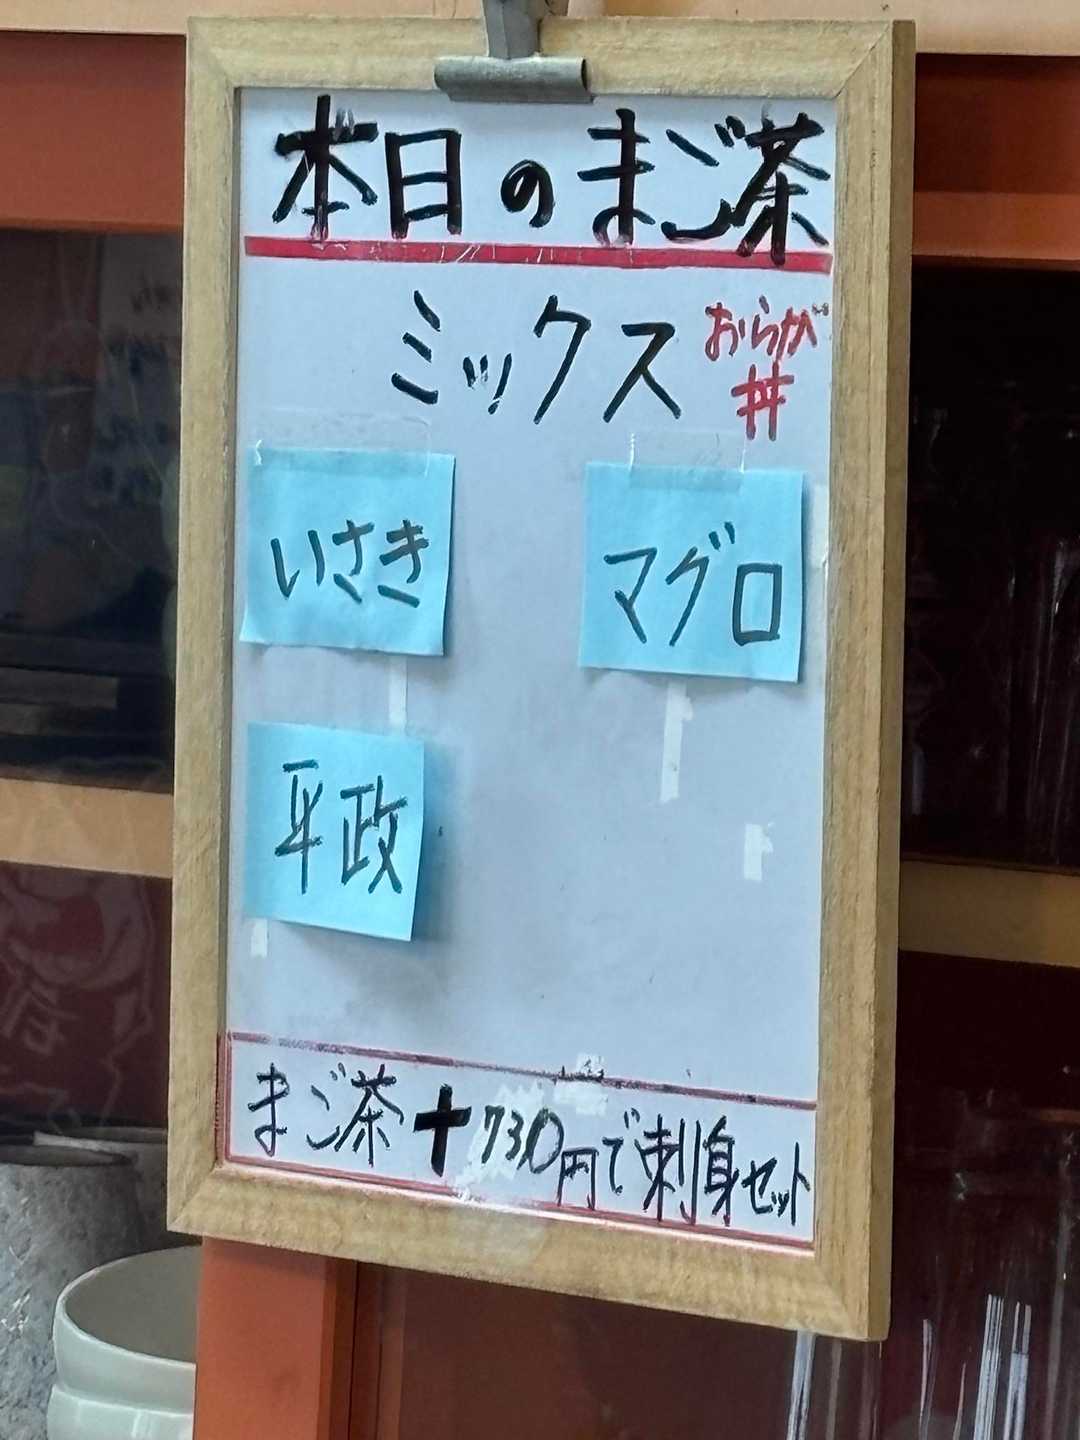 本日のまご茶
ミックス
おらが
丼
いさき
マグロ
平政
まご茶+730円で刺身セット